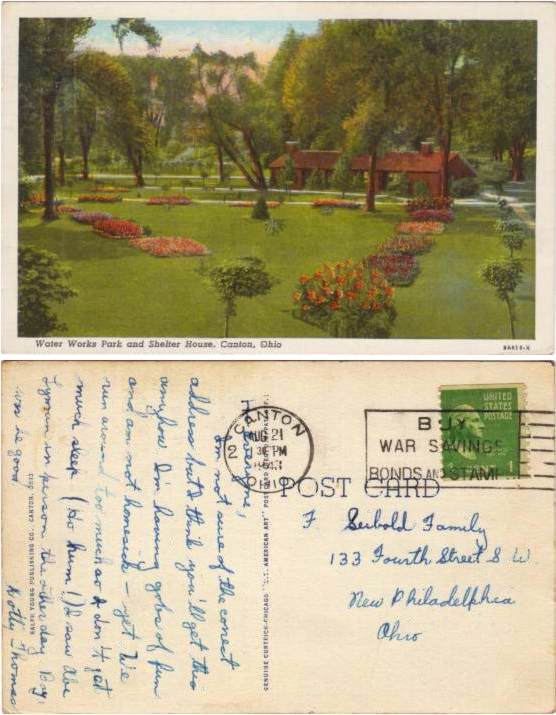 Water Works Park and Shelter House, Canton, Ohio
8A818-X
Hi Everyone,
I'm not sure of the correct
address but I think you'll get this
anyhow. I'm having gobs of fun
and am not homesick – yet. We
run around too much so I don't get
much sleep (Ho hum!) I saw Abe
Lyman in person the other day. Boy,
was he good
Dotty Thomas
RALPH YOUNG PUBLISHING CO., CANTON, OHIO
GENUINE CURTEICH-CHICAGO "C.T. AMERICAN ART" POST CARD
CANTON
AUG 21
2
PM
1943
OHIO
BUY
WAR SAVINGS
BONDS AND STAMPS
UNITED
STATES
POSTAGE
1
POST CARD
Seibold Family
133 Fourth Street S W
New Philadelphia
Ohio